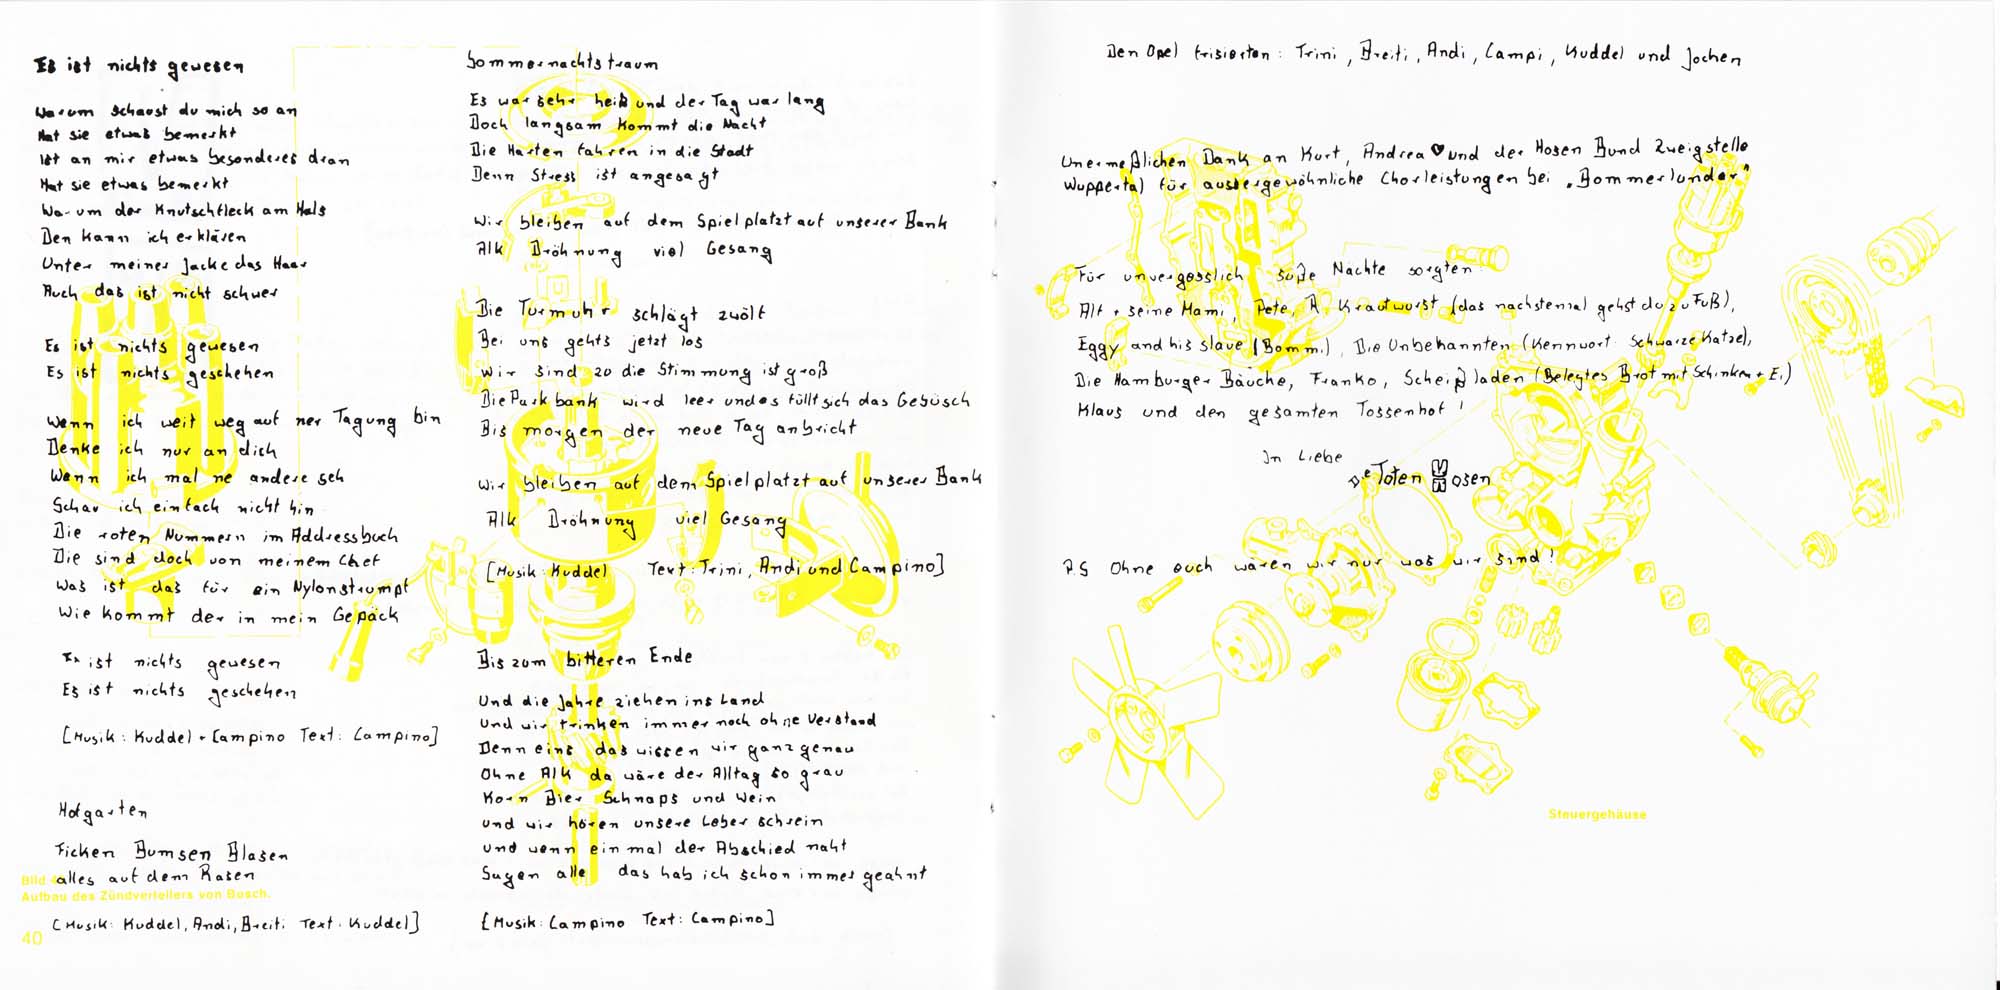 Es ist nichts gewesen
Warum schaust du mich so an
Hat sie etwas bemerkt
Ist an mir etwas besonderes dran
Hat sie etwas bemerkt
Warum der Knutschfleck am Hals
Den kann ich erklären
Unter meiner Jacke das Haar
Auch das ist nicht schwer
Es ist nichts gewesen
Es ist nichts geschehen
Wenn ich weit weg auf ner Tagung bin
Denke ich nur an dich
Wenn ich mal ne andere seh
Schau ich einfach nicht hin
Die roten Nummern im Addressbuch
Die sind doch von meinem Chef
Was ist das für ein Nylonstrumpf
Wie kommt der in mein Gepäck
Es ist nichts gewesen
Es ist nichts geschehen
[Musik: Kuddel + Campino Text: Campino]
Hofgarten
Ficken Bumsen Blasen
alles auf dem Rasen
[Musik: Kuddel, Andi, Breiti Text: Kuddel]
Bild
Aufbau des Zündverteilers von Bosch.
40
Sommernachtstraum
Es war sehr heiß und der Tag war lang
Doch langsam kommt die Nacht
Die Harten fahren in die Stadt
Denn Stress ist angesagt
Wir bleiben auf dem Spielplatzt auf unserer Bank
Alk Dröhnung viel Gesang
Die Turmuhr schlägt zwölf
Bei uns gehts jetzt los
Wir sind 20 die Stimmung ist groß
Die Parkbank wird leer und es füllt sich das Gebüsch
Bis morgen der neue Tag anbricht
Wir bleiben auf dem Spielplatzt auf unserer Bank
Alk Dröhnung viel Gesang
[Musik: Kuddel Text: Trini, Andi und Campino]
Bis zum bitteren Ende
Und die Jahre ziehen ins Land
Und wir trinken immer noch ohne Verstand
Denn eins das wissen wir ganz genau
Ohne Alk da wäre der Alltag so grau
Korn Bier Schnaps und Wein
und wir hören unsere Leber schrein
und wenn einmal der Abschied naht
Sagen alle das hab ich schon immer geahnt
[Musik: Campino Text: Campino]
Den Opel frisierten: Trini, Breiti, Andi, Campi, Kuddel und Jochen
Unermeßlichen Dank an Kurt, Andrea ♥ und der Hosen Bund Zweigstelle
Wuppertal für aussergewöhnliche Chorleistungen bei „Bommerlunder"
Für unvergesslich süße Nächte sorgten:
Alf + seine Mami, Pete, A. Krautwurst (das nachstemal gehst du zu Fuß),
Eggy and his slave (Bomm.), Die Unbekannten (Kennwort: Schwarze Katze),
Die Hamburger Bäuche, Franko, Scheißladen (Belegtes Brot mit Schinken + Ei)
Klaus und den gesamten Tossenhof!
In Liebe
Die Toten Hosen
P.S Ohne euch wären wir nur was wir sind!
Steuergehäuse